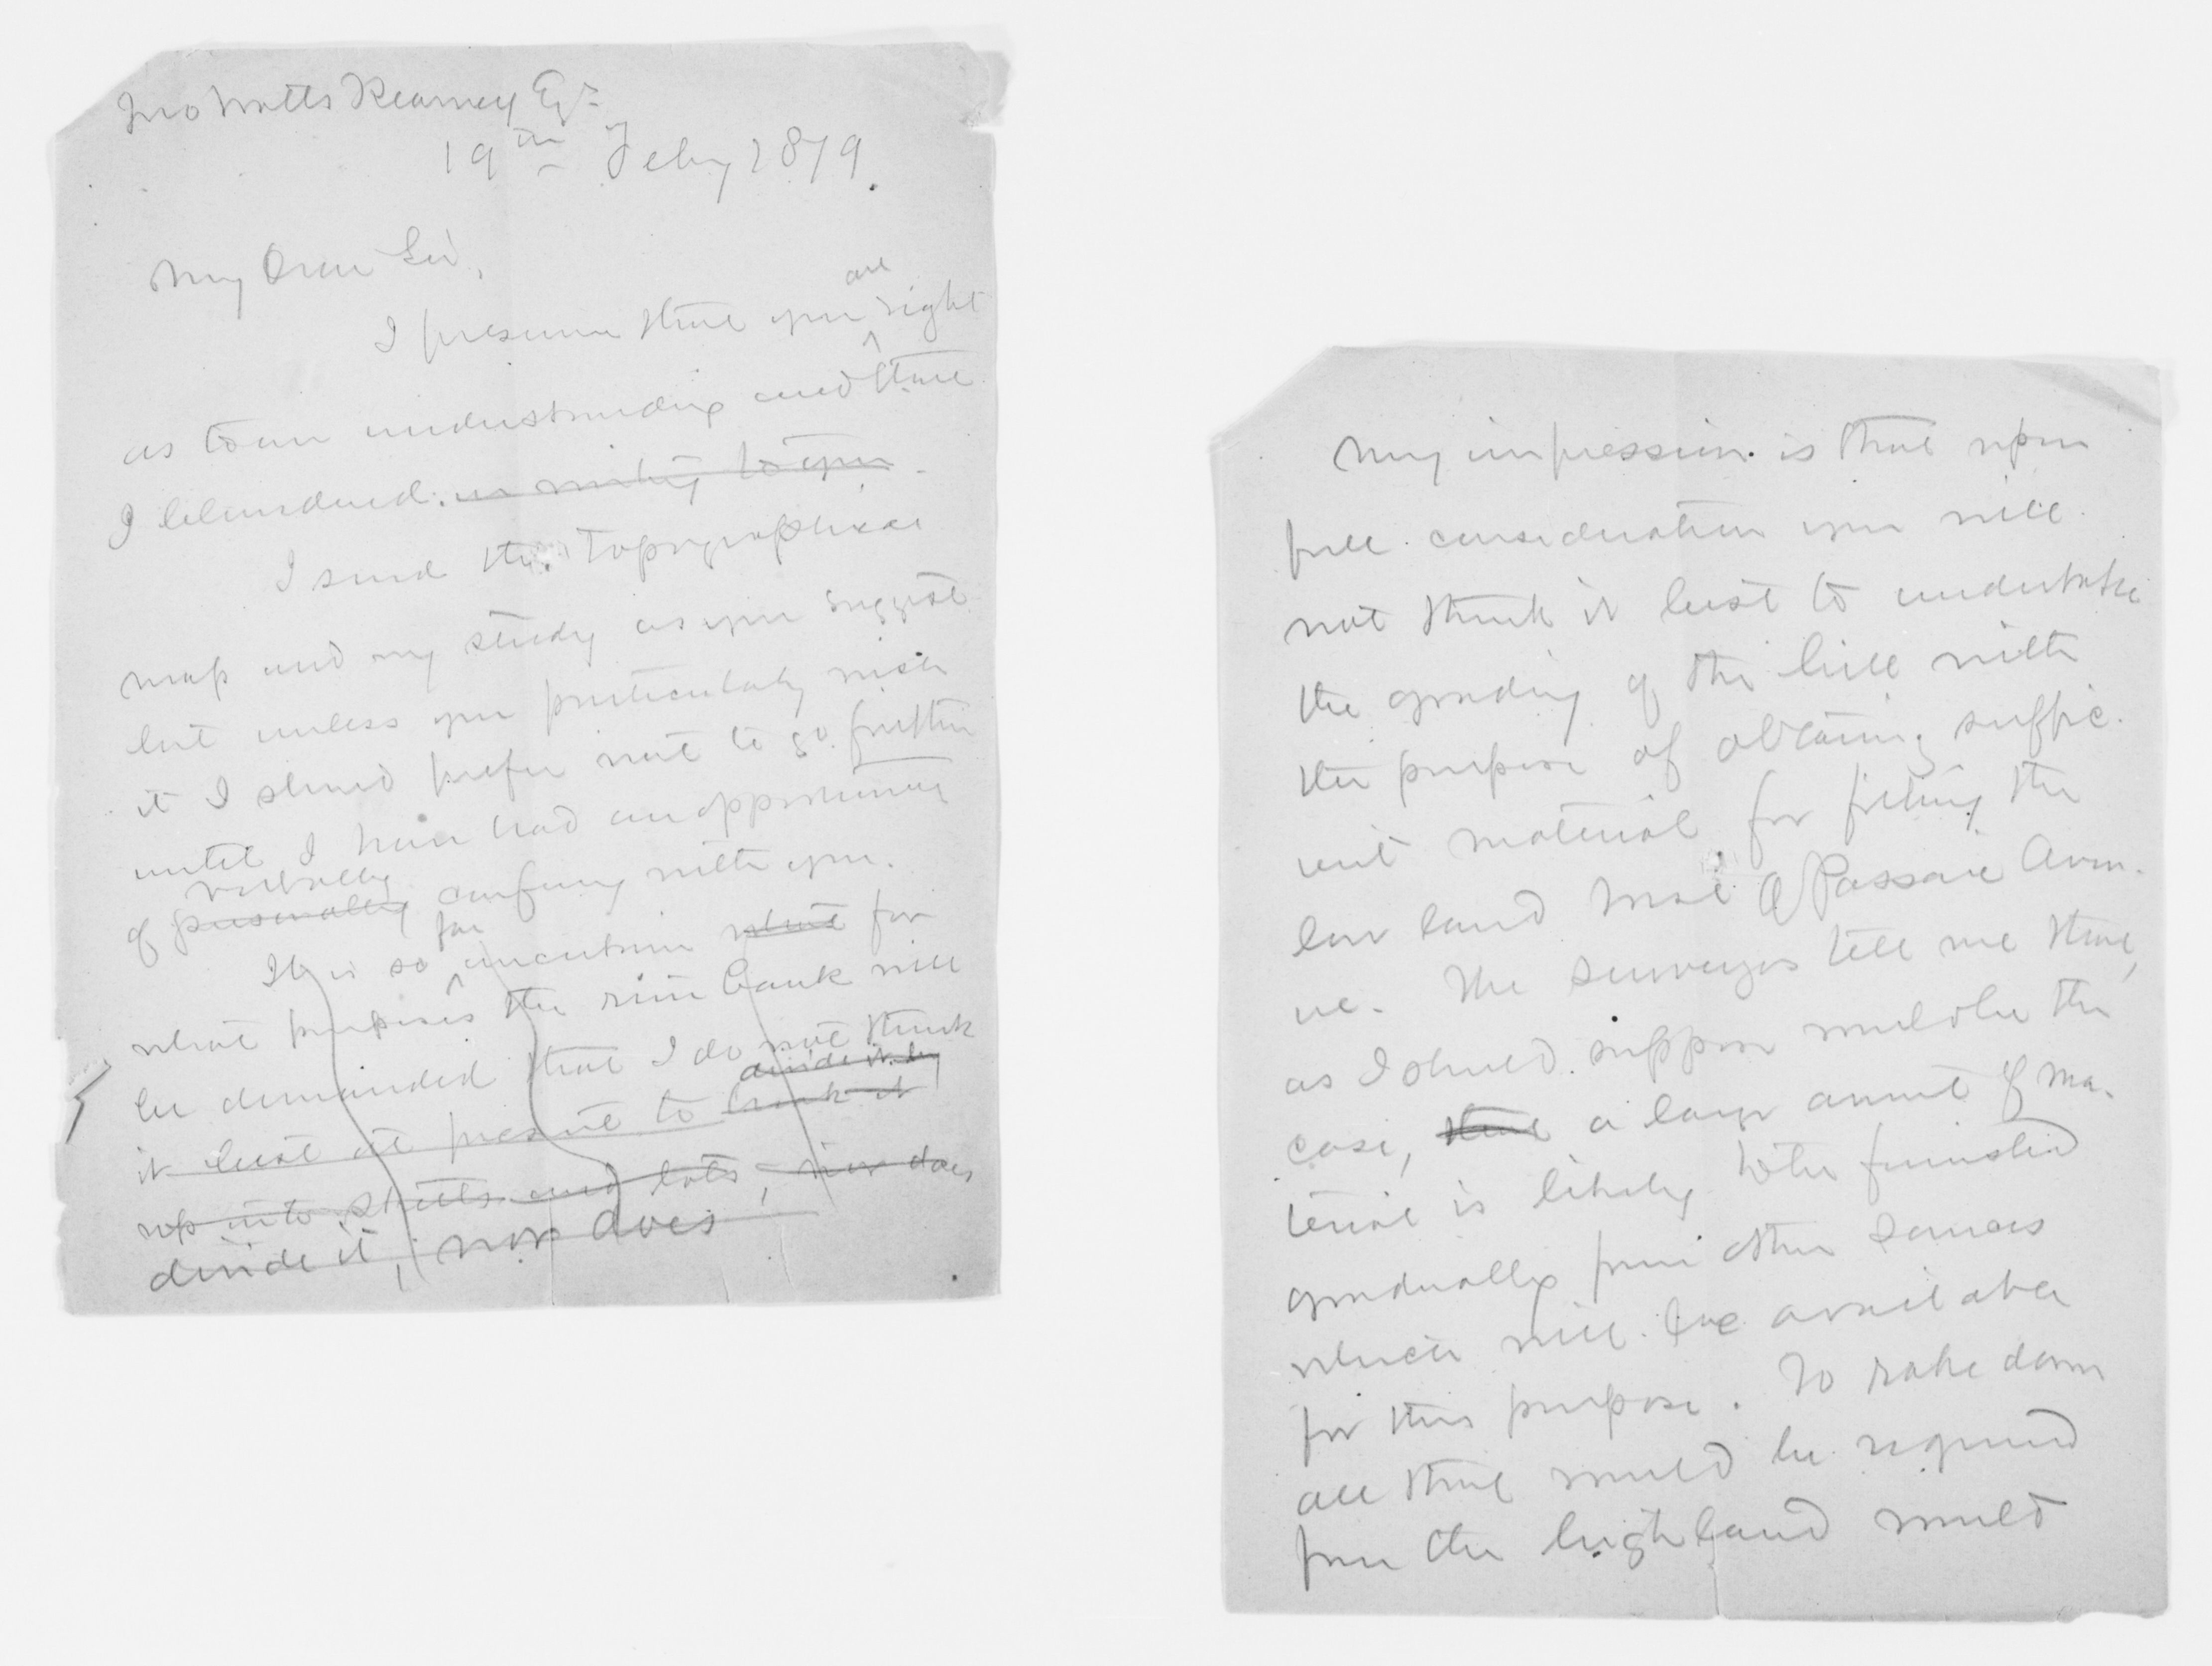 Jno Watts Kearney Esqr
19th Feby 1879.
My Dear Sir,
I presume that you are right
as to our understanding and that
I blundered. in writing to you
I send the topographical
map and my study as you suggest
but unless you particularly wish
it I should prefer not to go further
until I have had an opportunity
of personally verbally confering with you.
It is so far uncertain what for
what purposes the river bank will
be demanded that I do not think
it best at present to break it divide it by
up into streets and lots, nor does
divide it, nor does
My impression is that upon
full consideration you will
not think it best to undertake
the grading of the hill with
the purpose of obtaining suffic-
ient material for filling the
low land West of Passaic Aven-
ue. The surveyors tell me that,
as I should suppose would be the
case, that a large amount of ma-
terial is likely to be furnished
gradually from other sources
which will be available
for this purpose. To take down
all that would be required
from the high land would